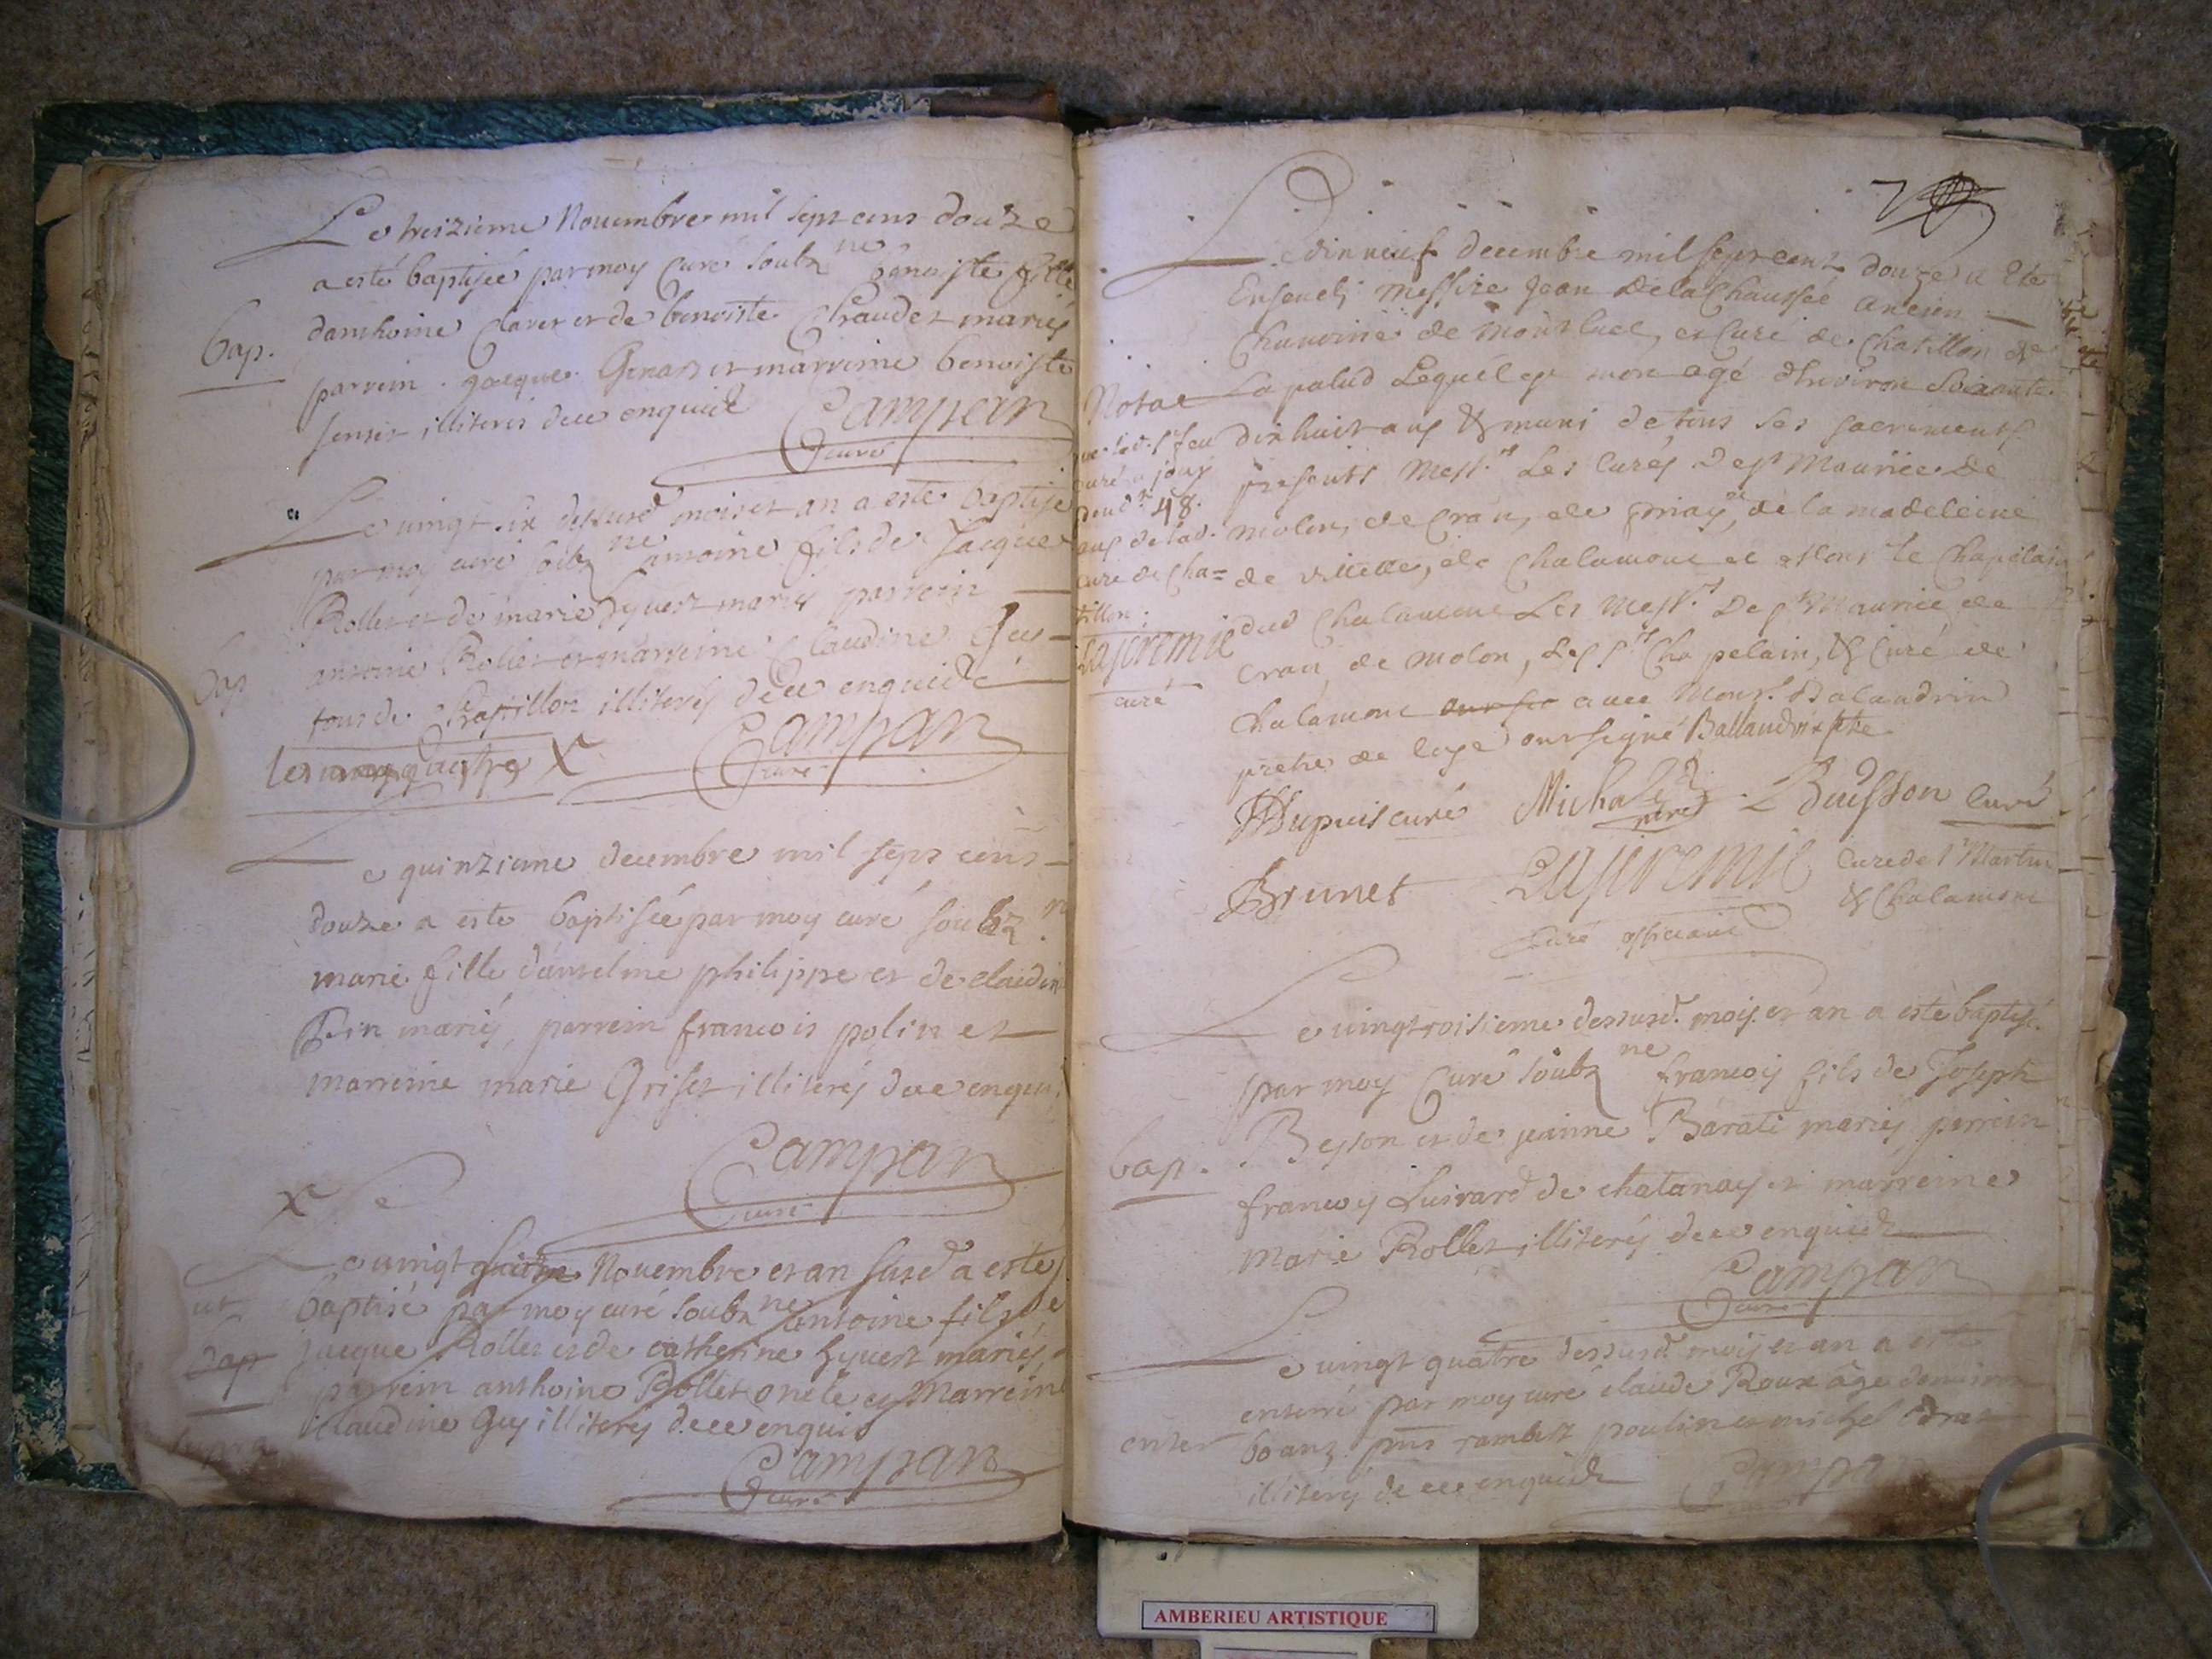 Le treizieme Novembre mil sept cens douze
a esté baptisée par moy Curé soubz ne benoiste fille
bap. danthoine Claret et de benoiste Chaudet mariés
parrein jacque Genar et marreine benoiste
illiteres de ce enquis
Campan
curé
Le vingt six dessusd moiset an a este baptise
par moy curé soubz ne antoine fils de Jacque
Rollet et de marie hyvert mariés parrein
bap antoine Rollet et marreine Claudine Guy
tous de Chatillon illiterés de ce enquis
Campan
curé
Le quinzieme decembre mil sept cens
douze a este baptisée par moy curé soubz n
marie fille danselme philippe et de claudin
Pin mariés, parrein francois polin et
marreine marie Griset illiterés de ce enqui
Campan
curé
Le vingt Novembre et an susd a este
baptisé par moy curé soubz ne antoine fils de
bap jacque Rollet et de catherine hyvert mariés,
parrein anthoine Rollet oncle et Marreine
claudine Guy illiterés de ce enquis
Campan
curé
Le dixneuf decembre mil sept cent douze a Ete
Enseveli Messire Jean De la Chaussée ancien
Chanoine de Montluel, et Curé de Chatillon de
La palud Lequel est mort agé d'Environ Soixante
dix huit ans & muni de tous ses sacrements
presents Mess.rs Les Curés De st Maurice de
molon, de Cran, de priay, de la madeleine
de villette, de Chalamont et le Chapelain
dud Chalamont Les Mess.rs De st Maurice de
Cran de molon, Chapelain, & Curé de
Chalamont avec Mons.r Balandrin
pretre de loye ont signé Ballandrin ptre
Nota
que led. sr feu
curé a joüy
pend.t 48.
ans de lad.
cure de Cha=
tillon;
Lajeremie
curé
Dupuis curé Buisson Curé
Brunet Lajeremie Curé de st Martin
& Chalamont
Curé officiant
Le vingtroisieme dessusd. mois et an a esté baptisé
par moy Curé soubz ne francois fils de Joseph
bap. Besson et de jeanne Barati mariés parrein
francois Luivard de chatanay et marreine
Marie Rollet illiterés de ce enquis
Campan
curé
Le vingt quatre dessusd. mois et an a esté
enterré par moy curé claude Roux âgé denviron
enter 60 ans pnts rambert poulin et michel
illiterés de ce enquis
Campan
AMBERIEU ARTISTIQUE